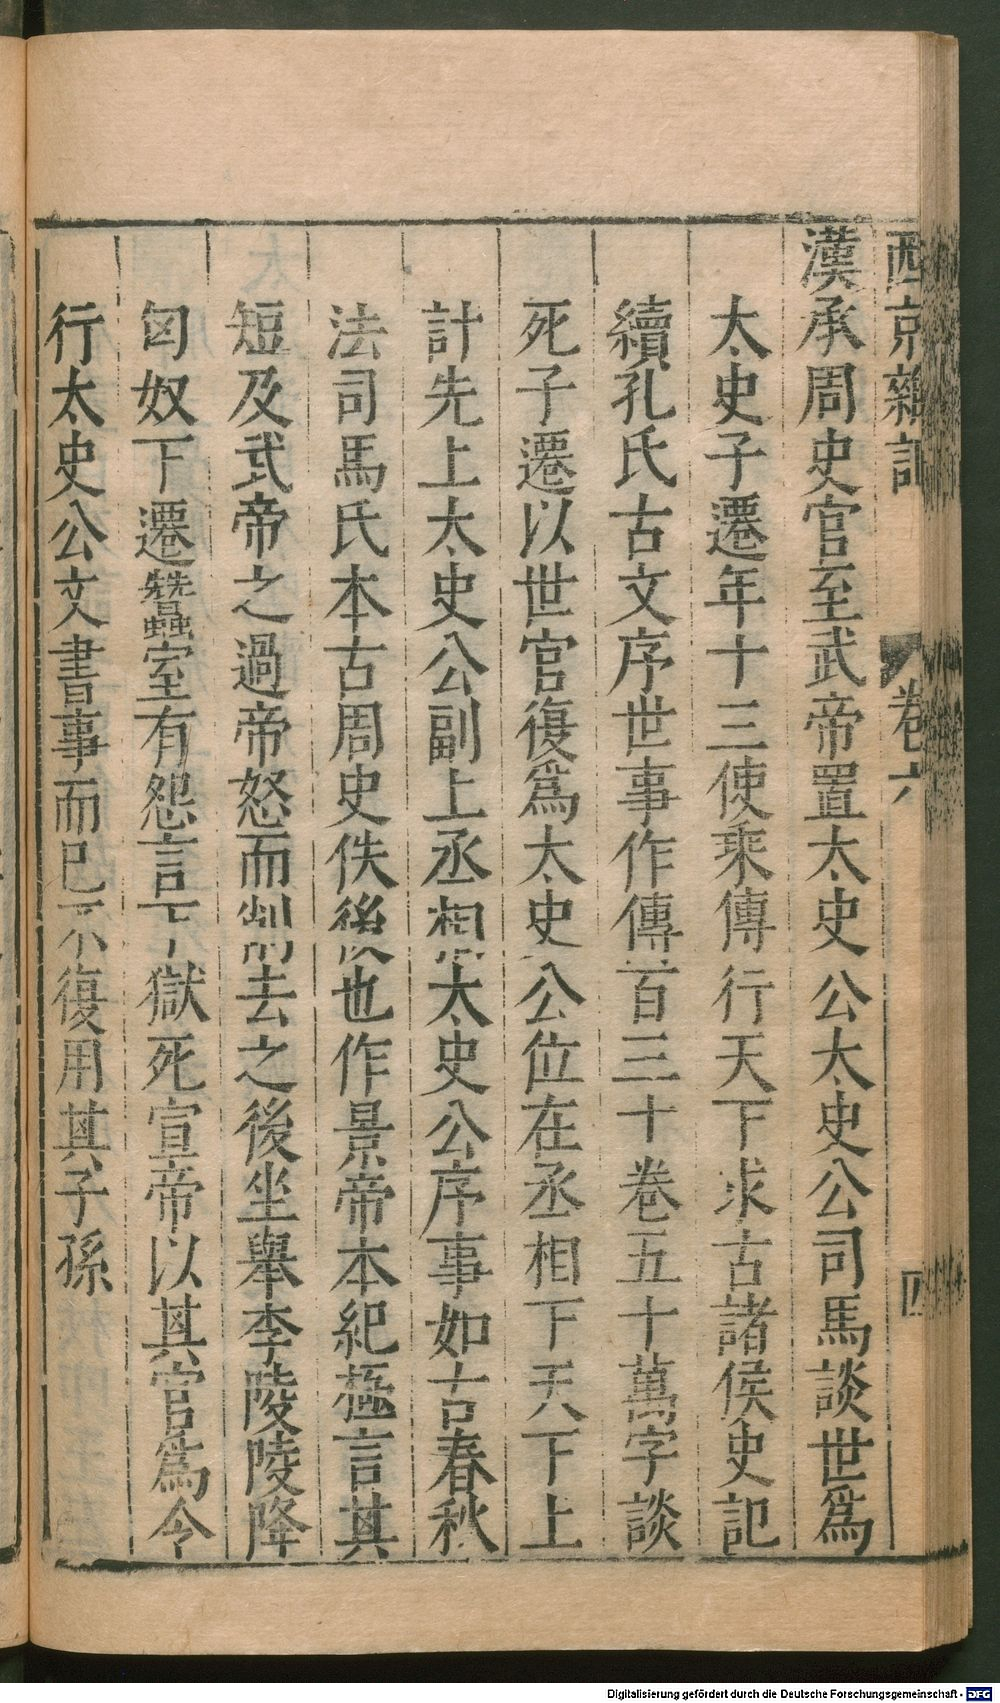 西京雜記 卷六 四
漢承周史官至武帝置太史公太史公司馬談世爲
太史子遷年十三使乘傳行天下求古諸侯史記
續孔氏古文序世事作傳百三十卷五十萬字談
死子遷以世官復爲太史公位在丞相下天下上
計先上太史公副上丞相太史公序事如古春秋
法司馬氏本古周史佚後也作景帝本紀極言其
短及武帝之過帝怒而削去之後坐舉李陵陵降
匈奴下遷蠶室有怨言下獄死宣帝以其官爲令
行太史公文書事而已不復用其子孫
Digitalisierung gefördert durch die Deutsche Forschungsgemeinschaft - DFG